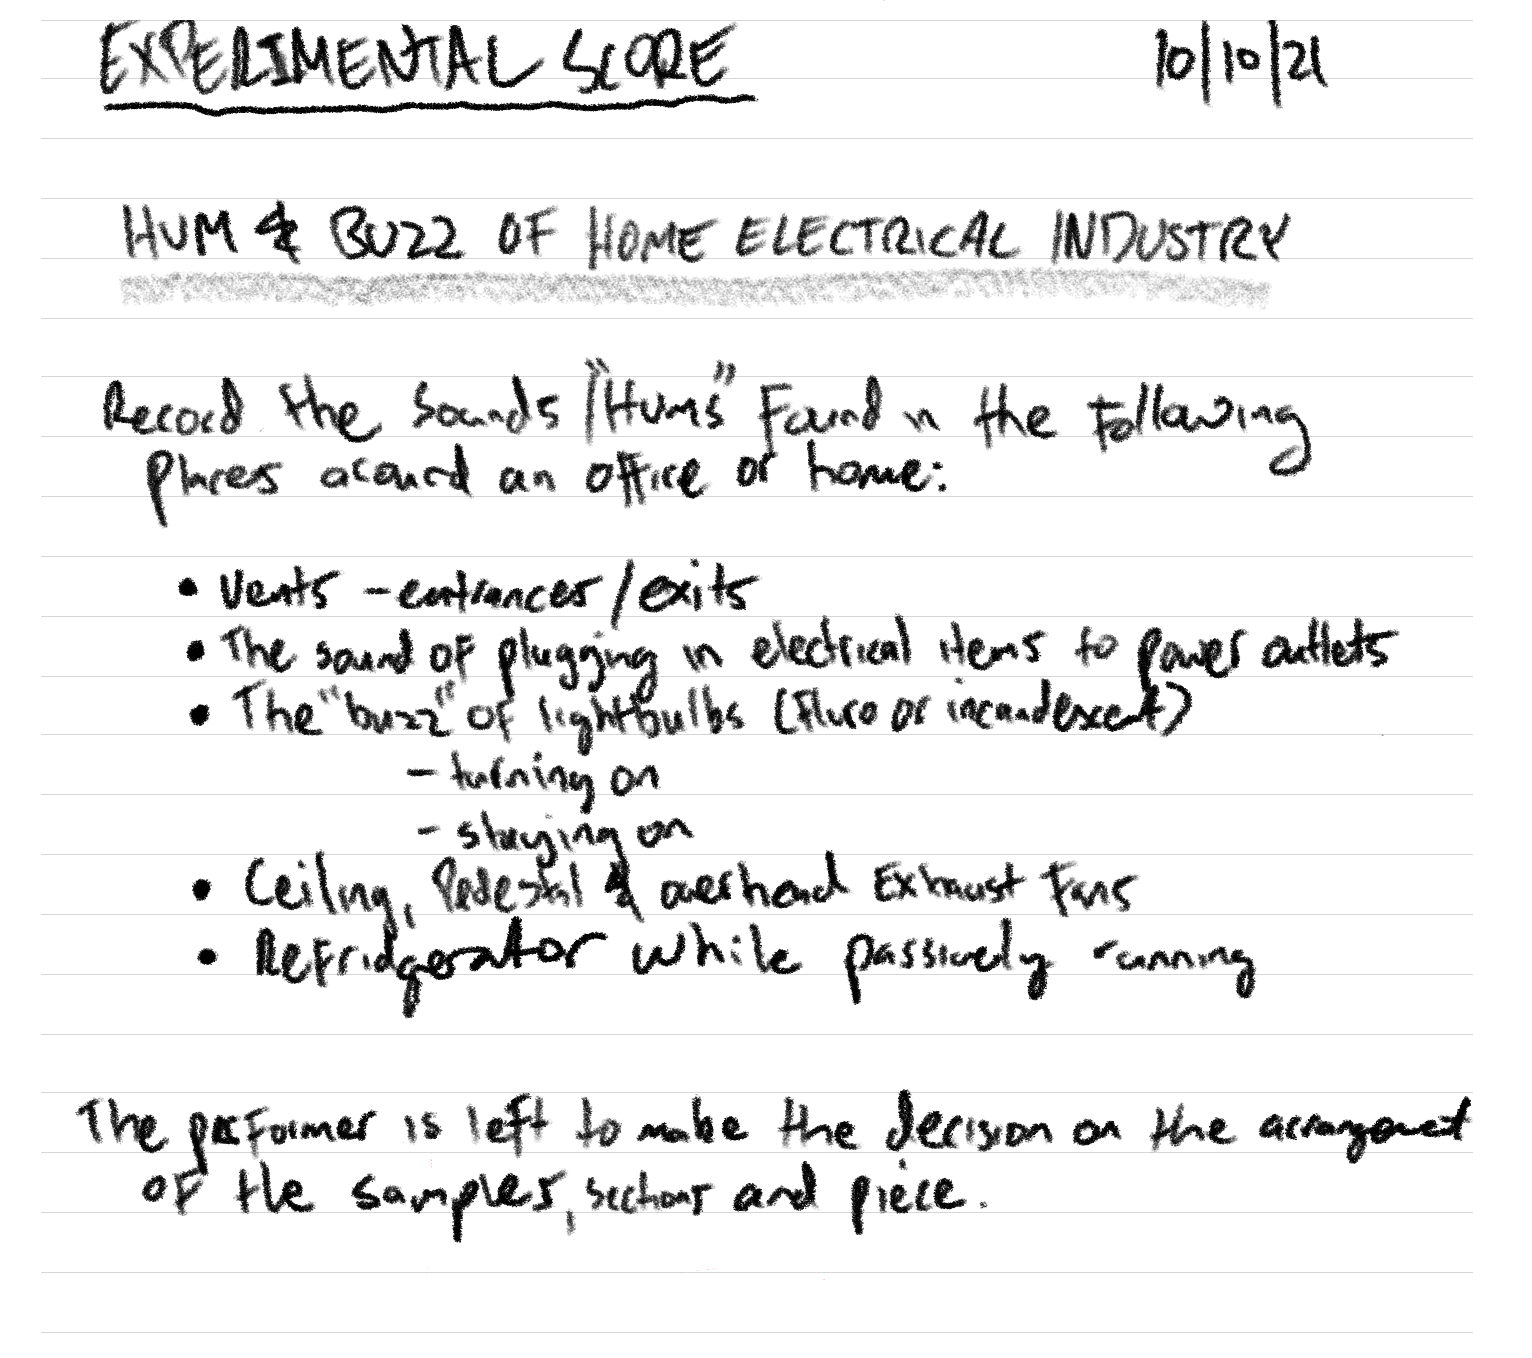 EXPERIMENTAL SCORE 10/10/21
HUM & BUZZ OF HOME ELECTRICAL INDUSTRY
Record the sounds / "Hums" Found in the Following
places around an office or home:
• Vents - entrances / exits
• The sound of plugging in electrical items to power outlets
• The "buzz" of lightbulbs (fluro or incandescent)
- turning on
- staying on
• Ceiling, Pedestal & overhead Exhaust Fans
• Refridgerator while passively running
The performer is left to make the decision on the arrangement
of the samples, sections and piece.